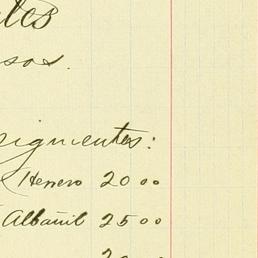 sos.
siguientes:
Herrero 20 00
Albañil 25 00